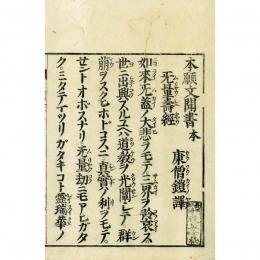 本願文聞書 本
无量壽經
康僧鎧譯
如來无蓋ノ大悲ヲモテ三界ヲ矜哀ス
世ニ出興スルユヘハ道教ヲ光闡シテ群
萠ヲスクヒホドコスニ真實ノ利ヲモテ
セントオボスナリ无量劫ニモアヒガタ
クミタテマツリガタキコト靈瑞華ノ